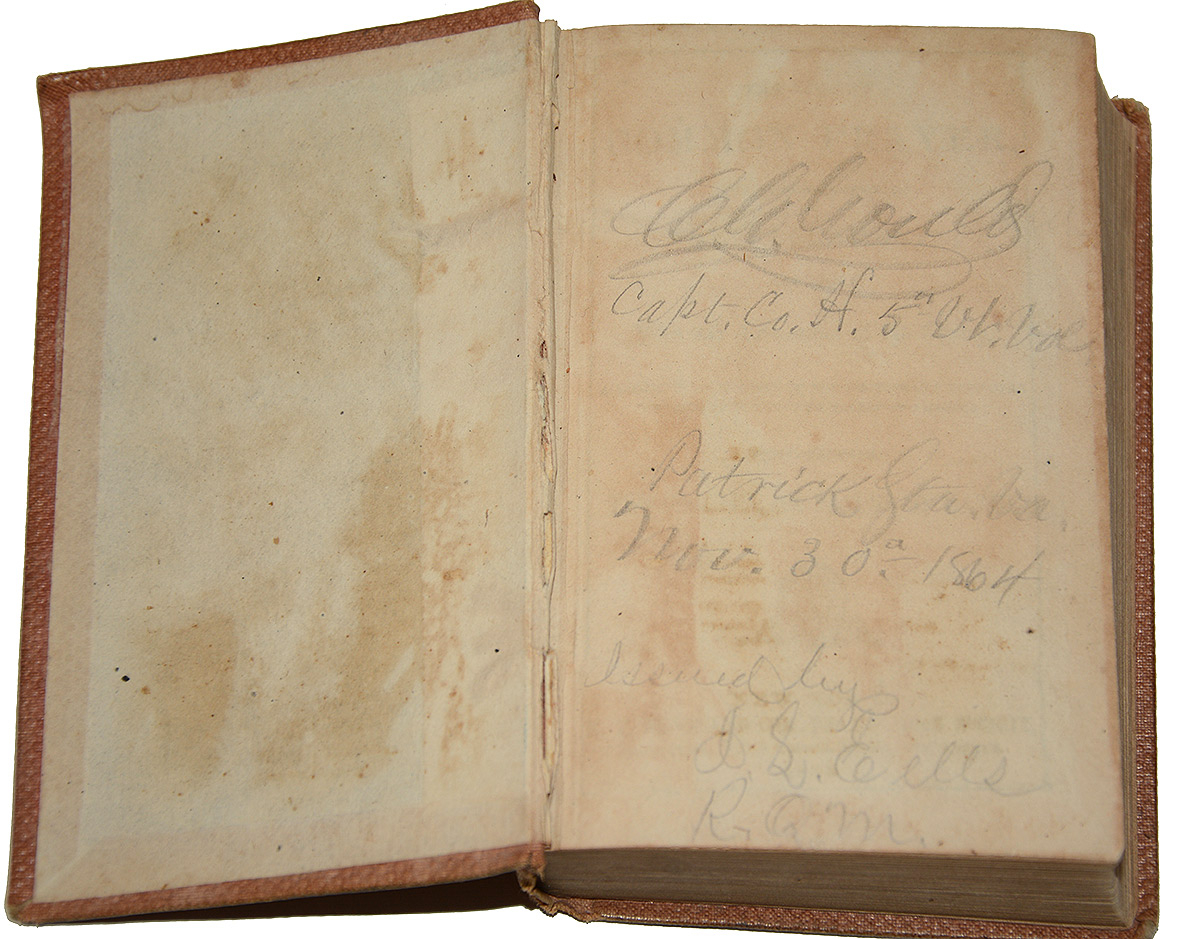 C. G. Gould
Capt. Co. H. 5th Vt. Vol
Patrick Sta. Va.
Nov. 30th 1864
Issued by
S. Eells
R. Q. M.